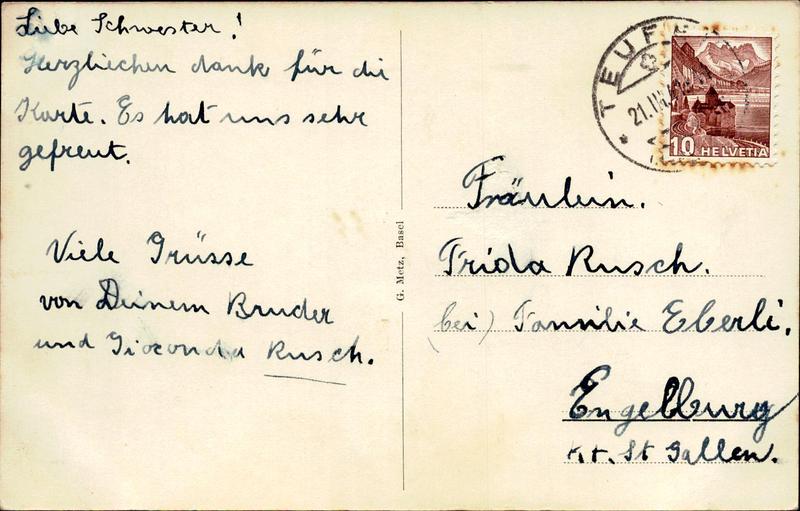 Liebe Schwester!
Herzliechen dank für di
Karte. Es hat uns sehr
gefreut.
Viele Grüsse
von Deinem Bruder
und Gioconda Rusch.
G. Metz, Basel
TEUFEN
21.
10 HELVETIA
Fräulein.
Frida Rusch.
(bei) Familie Eberli.
Engelburg
Kt. St Gallen.